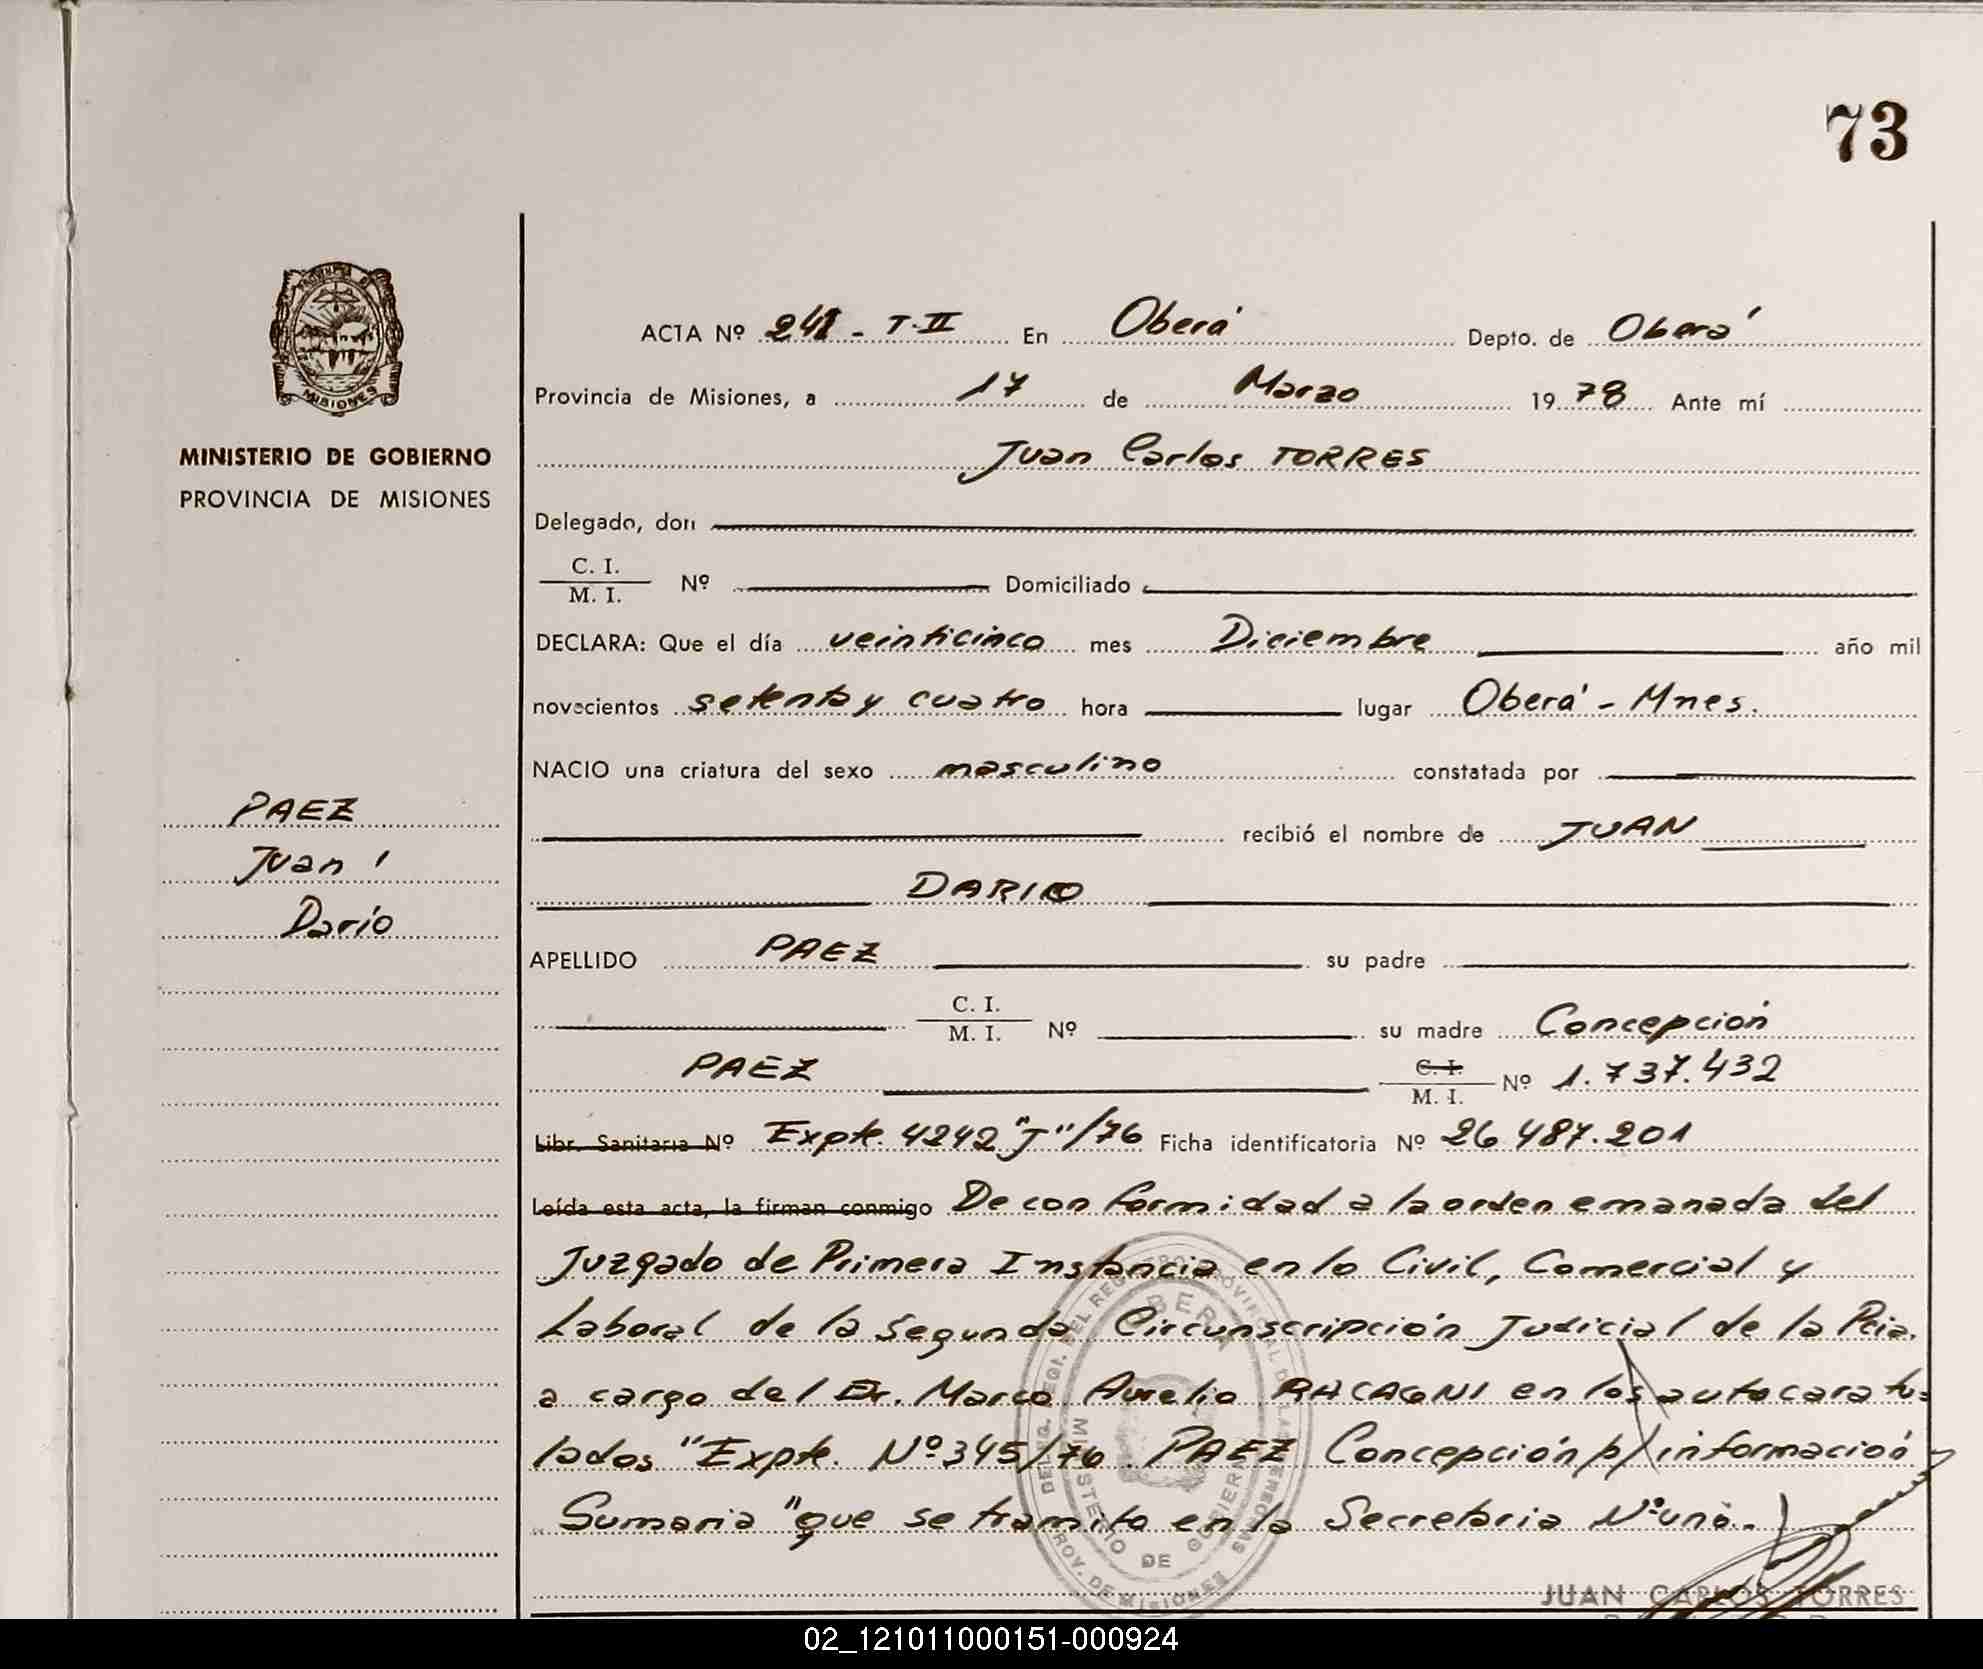 73
PROVINCIA DE
MISIONES
MINISTERIO DE GOBIERNO
PROVINCIA DE MISIONES
ACTA Nº 241 - T·II En Oberá Depto. de Oberá
Provincia de Misiones, a 17 de Marzo 1978 Ante mí
Juan Carlos TORRES
Delegado, don
C. I.
M. I. Nº Domiciliado
DECLARA: Que el día veinticinco mes Diciembre año mil
novecientos setenta y cuatro hora lugar Oberá - Mnes.
NACIO una criatura del sexo masculino constatada por
PAEZ
recibió el nombre de JUAN
Juan
DARIO
Darío
APELLIDO PAEZ su padre
C. I.
M. I. Nº su madre Concepción
PAEZ C. I.
M. I. Nº 1.737.432
Libr. Sanitaria Nº Expte. 4242 "J"/76 Ficha identificatoria Nº 26.487.201
Leída esta acta, la firman conmigo De conformidad a la orden emanada del
Juzgado de Primera Instancia en lo Civil, Comercial y
Laboral de la Segunda Circunscripción Judicial de la Pcia.
a cargo del Dr. Marco Aurelio RACAGNI en los auto caratu-
lados "Expte. Nº 345/76 PAEZ Concepción p/ información
Sumaria" que se tramito en la Secretaria Nº uno.
MINISTERIO DE GOBIERNO
PROV. DE MISIONES
JUAN CARLOS TORRES
02_121011000151-000924